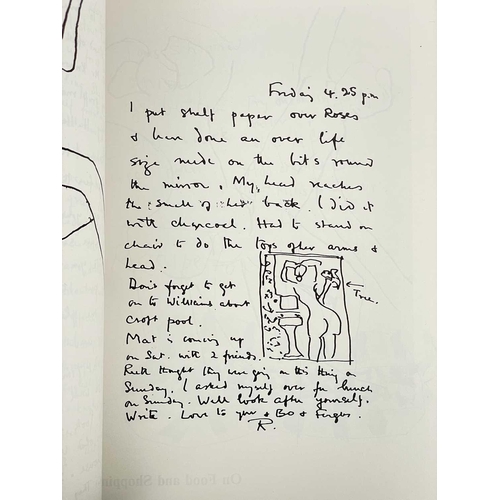 Friday 4.25 p.m
I put shelf paper over Roses
& have done an over life
size nude on the bits round
the mirror. My head reaches
the small of her back. I did it
with charcoal. Had to stand on
chair to do the tops of her arms &
head.
Don't forget to get
on to Williams about
croft pool.
← Tree.
Mat is coming up
on Sat. with 2 friends.
Ruth thought they were going on this thing on
Sunday. I asked myself over for lunch
on Sunday. Well look after yourself.
Write. Love to you & Bo & Fergus.
R.
On Food and Shopping